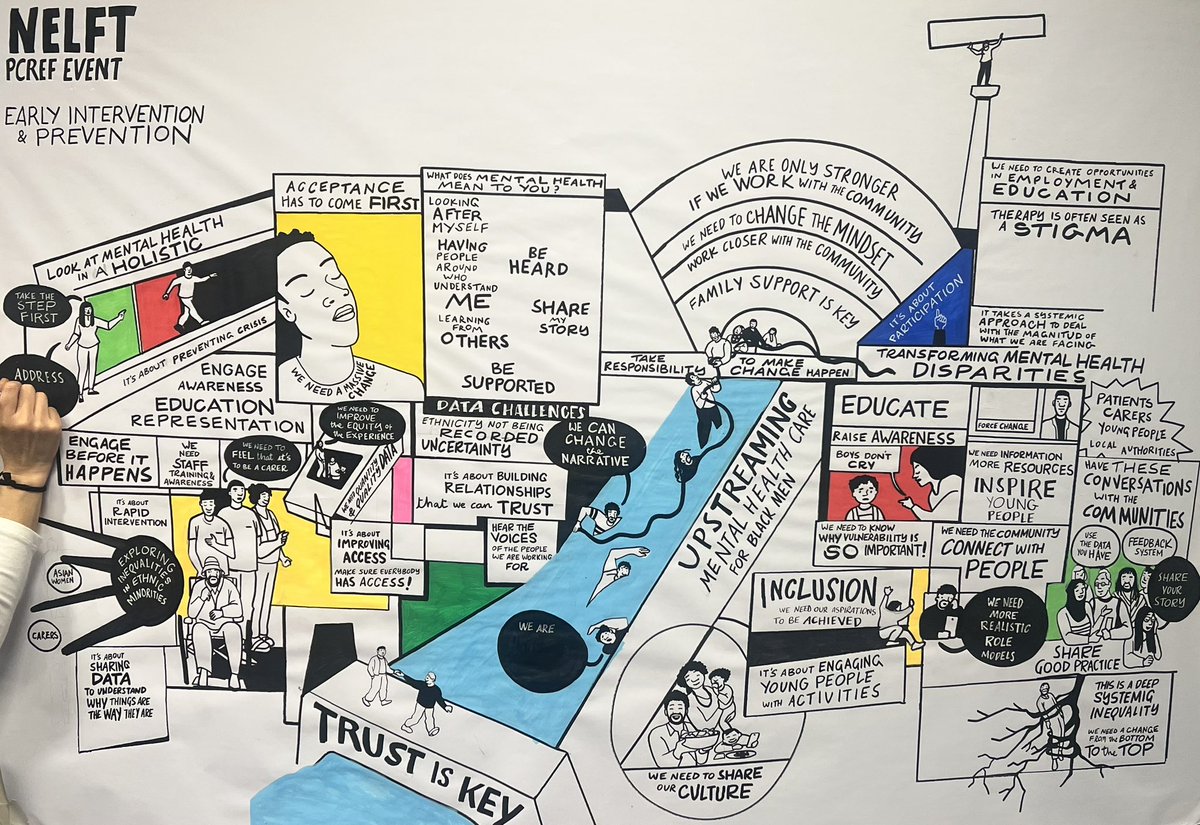 NELFT
PCREF EVENT
EARLY INTERVENTION
& PREVENTION
TAKE THE
STEP
FIRST
ADDRESS
LOOK AT MENTAL HEALTH
IN A HOLISTIC
IT'S ABOUT PREVENTING CRISIS
ENGAGE
AWARENESS
EDUCATION
REPRESENTATION
ENGAGE
BEFORE IT
HAPPENS
WE
NEED
STAFF
TRAINING &
AWARENESS
WE NEED TO
FIEL that it's
TO BE A CARER
IT'S ABOUT
RAPID
INTERVENTION
EXPLORING
INEQUALITIES
in ETHNIC
MINORITIES
ASIAN
WOMEN
CARERS
IT'S ABOUT
SHARING
DATA
TO UNDERSTAND
WHY THINGS ARE
THE WAY THEY ARE
ACCEPTANCE
HAS TO COME FIRST
WE NEED A MASSIVE
CHANGE
WHAT DOES MENTAL HEALTH
MEAN TO YOU?
LOOKING
AFTER
MYSELF
HAVING
PEOPLE
AROUND
WHO
UNDERSTAND
ME
LEARNING
FROM
OTHERS
BE
HEARD
SHARE
MY
STORY
BE
SUPPORTED
WE NEED TO
IMPROVE
the EQUITY OF
the EXPERIENCE
& QUALITY DATA
DATA CHALLENGES
ETHNICITY NOT BEING
RECORDED
UNCERTAINTY
IT'S ABOUT BUILDING
RELATIONSHIPS
that we can TRUST
IT'S ABOUT
IMPROVING
ACCESS
MAKE SURE EVERYBODY
HAS ACCESS!
HEAR THE
VOICES
OF THE PEOPLE
WE ARE WORKING
FOR
WE CAN
CHANGE
the
NARRATIVE
WE ARE
TRUST IS KEY
WE ARE ONLY STRONGER
IF WE WORK WITH THE COMMUNITY
WE NEED TO CHANGE THE MINDSET
WORK CLOSER WITH THE COMMUNITY
FAMILY SUPPORT IS KEY
TAKE
RESPONSIBILITY
TO MAKE
CHANGE HAPPEN
IT'S ABOUT
PARTICIPATION
UPSTREAMING
MENTAL HEALTH CARE
FOR BLACK MEN
WE NEED TO SHARE
OUR CULTURE
WE NEED TO CREATE OPPORTUNITIES
IN EMPLOYMENT &
EDUCATION
THERAPY IS OFTEN SEEN AS
A STIGMA
IT TAKES A SYSTEMIC
APPROACH TO DEAL
WITH THE MAGNITUD OF
WHAT WE ARE FACING
TRANSFORMING MENTAL HEALTH
DISPARITIES
EDUCATE
RAISE AWARENESS
BOYS DON'T
CRY
WE NEED TO KNOW
WHY VULNERABILITY IS
SO IMPORTANT!
FORCE CHANGE
WE NEED INFORMATION
MORE RESOURCES
INSPIRE
YOUNG
PEOPLE
WE NEED THE COMMUNITY
CONNECT WITH
PEOPLE
PATIENTS
CARERS
YOUNG PEOPLE
LOCAL
AUTHORITIES
HAVE THESE
CONVERSATIONS
WITH the
COMMUNITIES
USE
THE DATA
YOU HAVE
FEEDBACK
SYSTEM
SHARE
YOUR
STORY
SHARE
GOOD PRACTICE
INCLUSION
WE NEED OUR ASPIRATIONS
TO BE ACHIEVED
IT'S ABOUT ENGAGING
YOUNG PEOPLE
WITH ACTIVITIES
WE NEED
MORE
REALISTIC
ROLE
MODELS
THIS IS A DEEP
SYSTEMIG
INEQUALITY
WE NEED A CHANGE
FROM the BOTTOM
TO the TOP